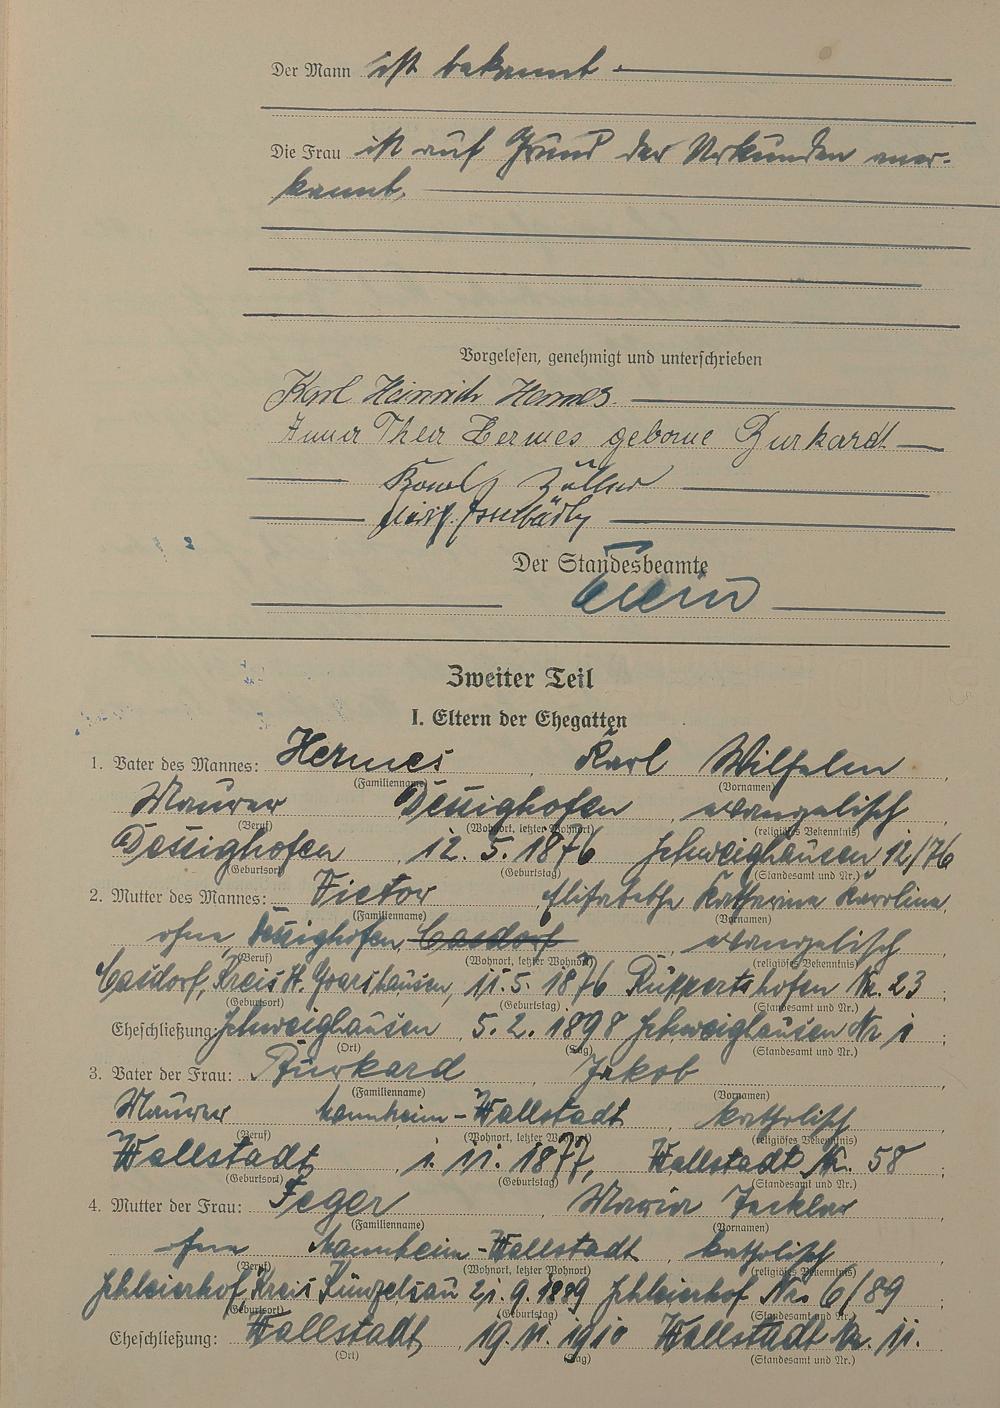 Der Mann ist bekannt.
Die Frau ist auf Grund der Urkunden aner-
kannt.
Vorgelesen, genehmigt und unterschrieben
Karl Heinrich Hermes
Anna Thea Hermes geborne Burkardt
Zöller
Der Standesbeamte
Zweiter Teil
I. Eltern der Ehegatten
1. Vater des Mannes: Hermes, Karl Wilhelm,
(Familienname) (Vornamen)
Maurer Dessighofen, evangelisch
(Beruf) (Wohnort, letzter Wohnort) (religiöses Bekenntnis)
Dessighofen, 12. 5. 1876 Schweighausen 12/76
(Geburtsort) (Geburtstag) (Standesamt und Nr.)
2. Mutter des Mannes: Victor, Elisabethe Katharine Karoline,
(Familienname) (Vornamen)
ohne, Dessighofen, Casdorf, evangelisch
(Beruf) (Wohnort, letzter Wohnort) (religiöses Bekenntnis)
Casdorf, Kreis St. Goarshausen, 11. 5. 1876 Ruppertshofen Nr. 23;
(Geburtsort) (Geburtstag) (Standesamt und Nr.)
Eheschließung: Schweighausen 5. 2. 1898 Schweighausen Nr 1;
(Ort) (Tag) (Standesamt und Nr.)
3. Vater der Frau: Burkard, Jakob,
(Familienname) (Vornamen)
Maurer Mannheim-Wallstadt, katholisch
(Beruf) (Wohnort, letzter Wohnort) (religiöses Bekenntnis)
Wallstadt, 1. 11. 1877, Wallstadt Nr. 58;
(Geburtsort) (Geburtstag) (Standesamt und Nr.)
4. Mutter der Frau: Feger, Maria,
(Familienname) (Vornamen)
ohne Mannheim-Wallstadt, katholisch
(Beruf) (Wohnort, letzter Wohnort) (religiöses Bekenntnis)
Schleierhof, Kreis Künzelsau 21. 9. 1889 Schleierhof Nr. 6/89;
(Geburtsort) (Geburtstag) (Standesamt und Nr.)
Eheschließung: Wallstadt, 19. 11. 1910 Wallstadt Nr. 11.
(Ort) (Tag) (Standesamt und Nr.)